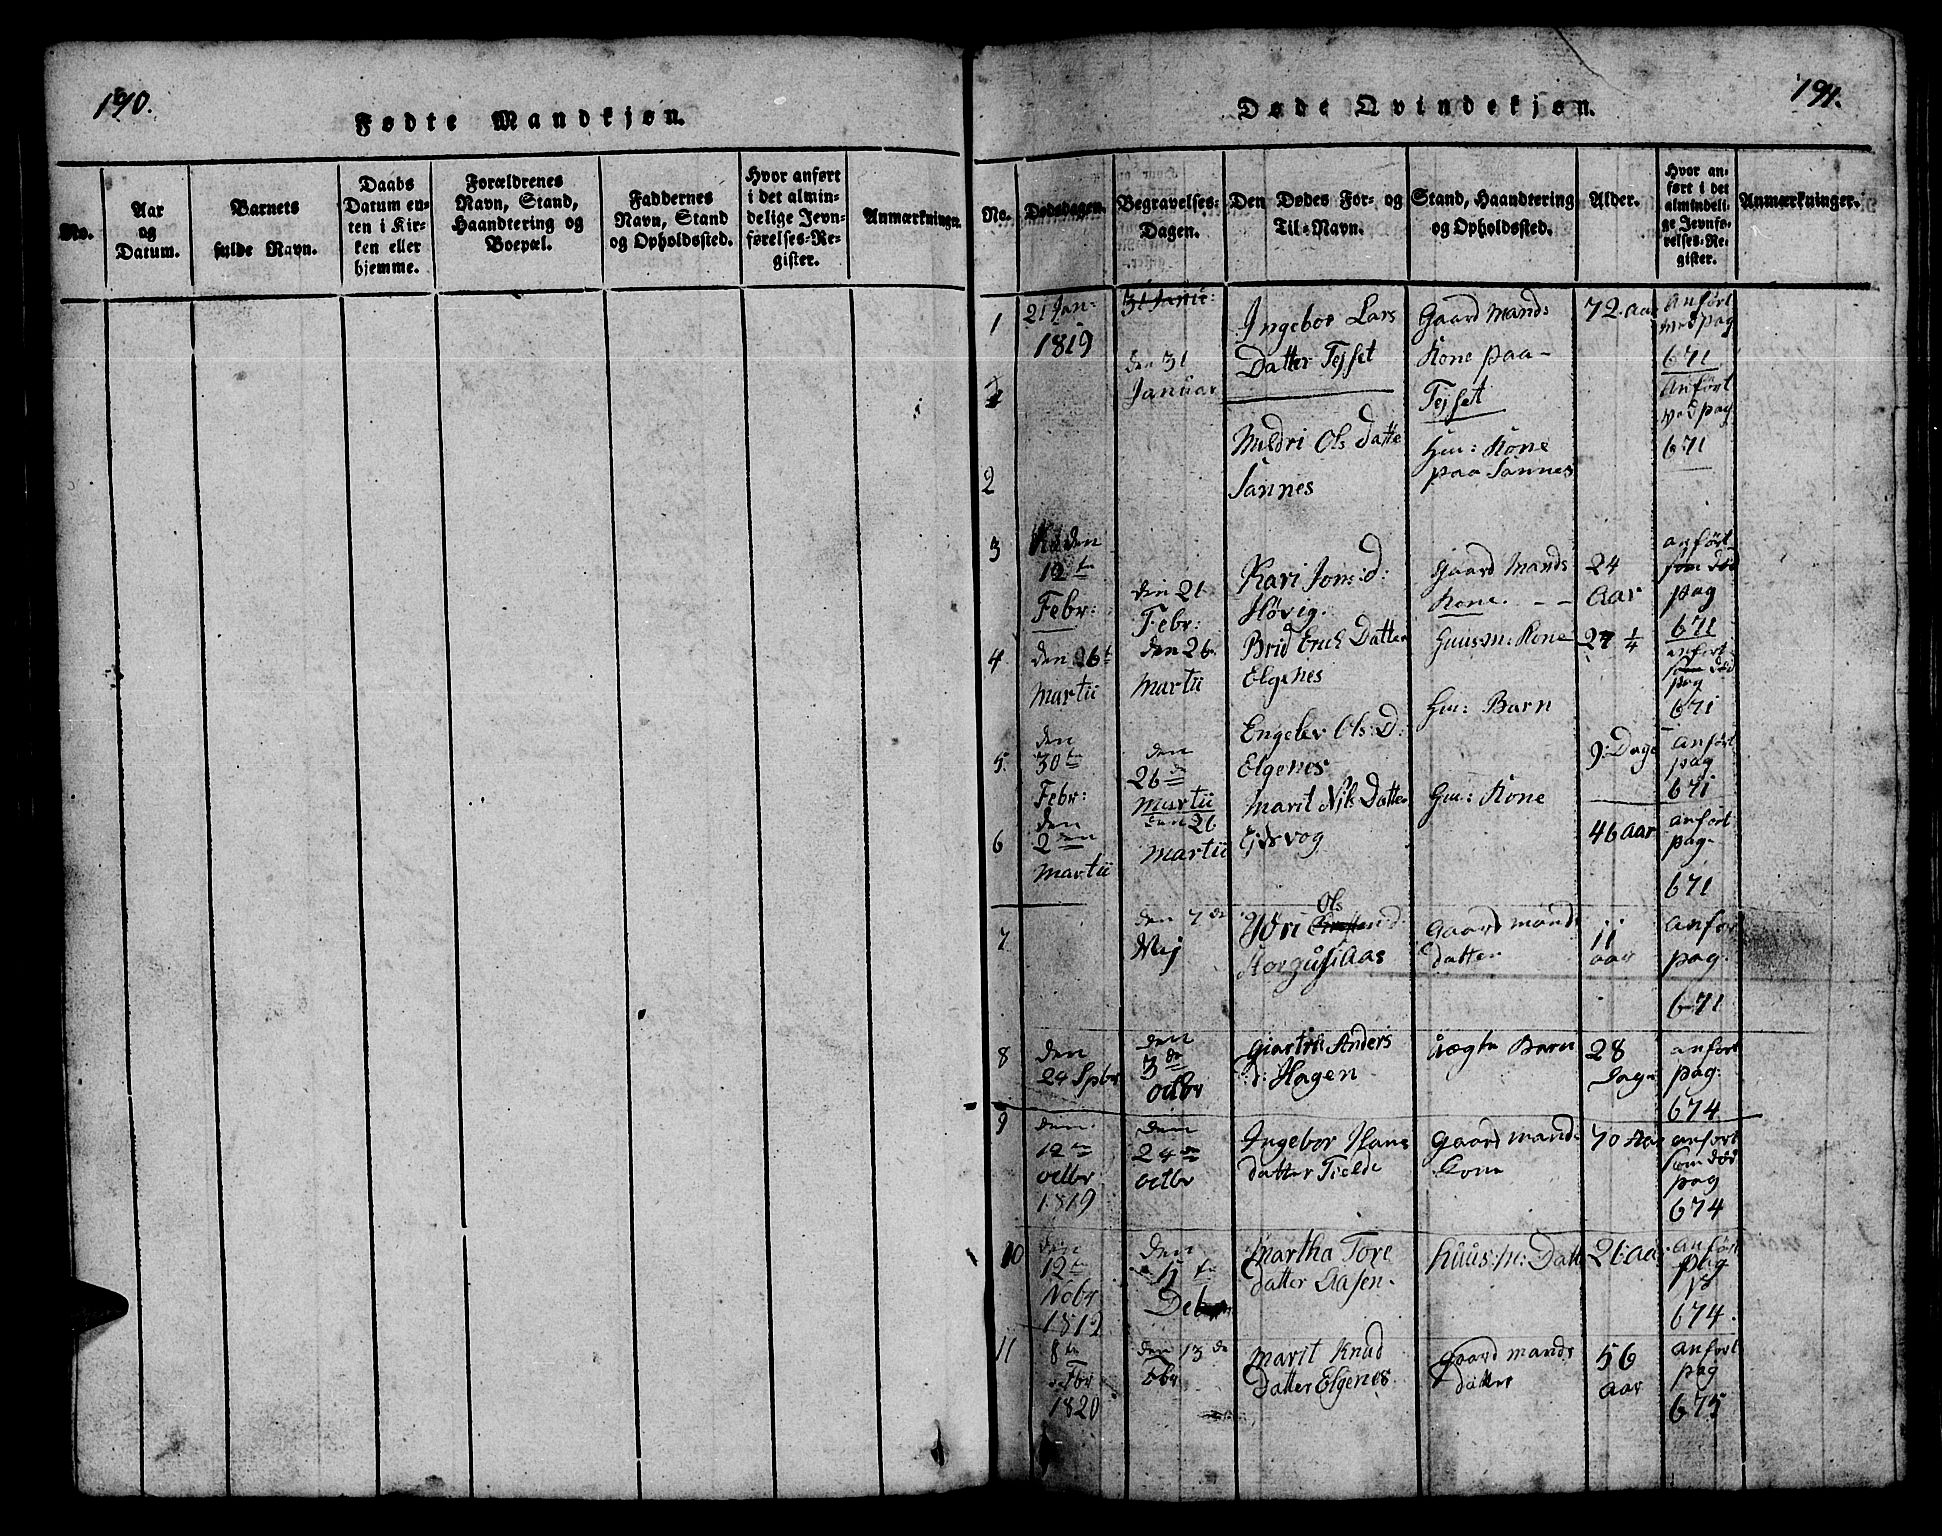 190.
Fødte Mandkjøn.
No.
Aar
og
Datum.
Barnets
fulde Navn.
Daabs
Datum en-
ten i Kir-
ken eller
hjemme.
Forældrenes
Navn, Stand,
Haandtering og
Boepæl.
Faddernes
Navn, Stand
og Opholdssted.
Hvor anført
i det almin-
delige Jevn-
førelses-Re-
gister.
Anmærkninger.
191.
Døde Qvindekjøn.
No.
Dødsdagen.
Begravelses-
Dagen.
Den Dødes For- og
Til-Navn.
Stand, Haandtering
og Opholdssted.
Alder.
Hvor an-
ført i det
almindeli-
ge Jevnfø-
relses-Re-
gister.
Anmærkninger.
1
21 Jan:
1819
31 Janu:
den 31
Januar
Ingebor Lars
Datter Tejset
Gaard Mands
Kone paa-
Tejset
72. aar
Anført
ved pag
671
2
Mildri Ols Datte
Sannes
Huu: Kone
paa Sannes
Anført
ved pag
671
3
den
12 te
Febr:
den 21
Febr:
Kari Jons:D:
Høvig.
Gaard Mands
Kone. - -
24
Aar
anført
som død
pag
671
4
den 26 t
Martii
den 26
Martii
Brid Erich Datter
Elgenes
Huusm: Kone
27 1/4
anført
som død
pag
671
5.
den
30 te
Febr:
den
26 de
Martii
Engelev Ols:D:
Elgenes
Huu: Barn
9: Dage
anført
pag
671
6
den
2 den
Martii
den 21
Martii
Marit Nils Datter
Ejdsvog
Huu: Kone
46 Aar
anført
pag-
671
7
den 7 de
Maj
Ols
Gaard mands
datter
11
aar
anfor
pag.
671
8
den
24 Spbr
den
3 de
octbr
Anders
d: Hagen
Ægte Barn
28
Dage
anført
pag.
674
9
den
12 te
octbr
1819
den
24 de
octbr
Ingebor Hans
datter Tielde
Gaard mands
kone
70 Aar
anfort
som død
pag
674
10
den
12 te
Nobr
1819
den
Martha Tore
datter Aasen-
Huus:M: Datt
26 aar
Anført
pag
674.
11
8 te
Fbr
1820
den 13 de
Marit Knud
Datter Elgenes.
Gaard mands
datter
56
Aar
anfort
pag
675